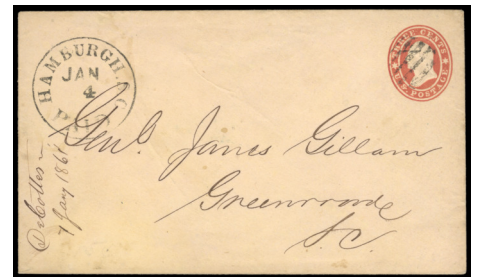 HAMBURGH. S.C.
JAN
4
PAID
THREE CENTS
U.S. POSTAGE
Genl. James Gillam
Greenwoode
S.C.
7 Jany 1861